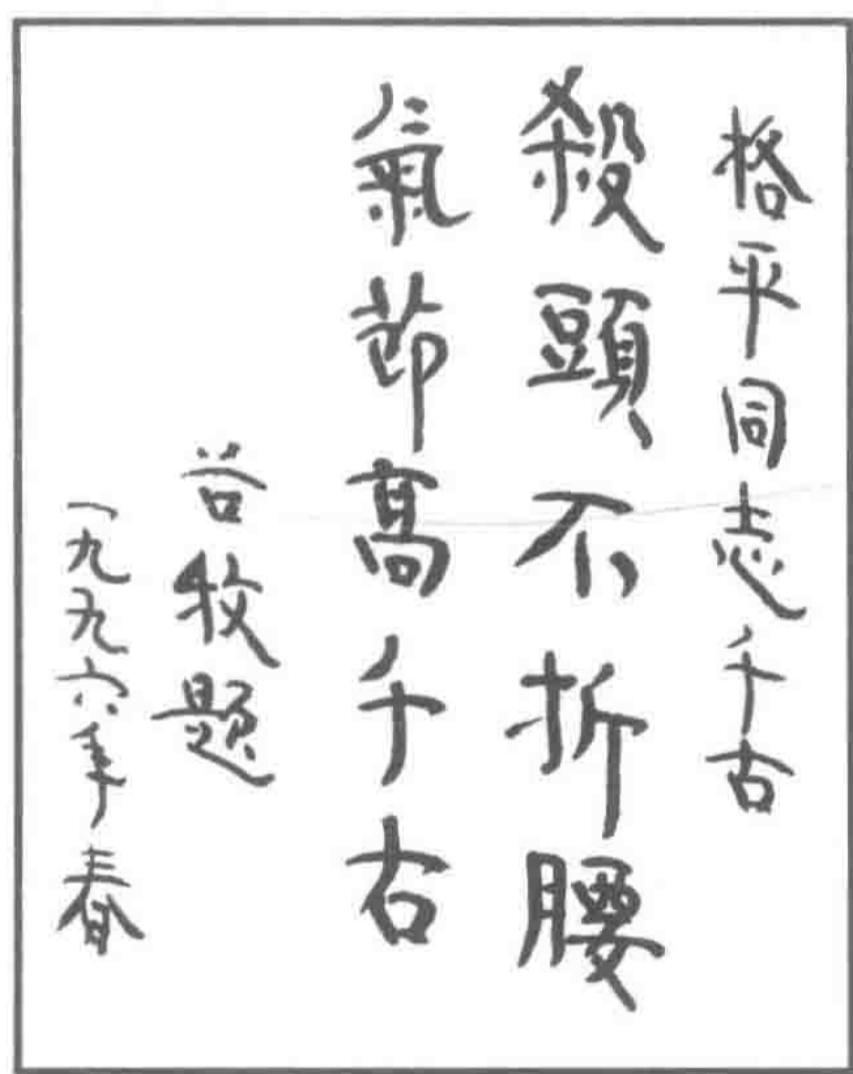 格平同志千古
殺頭不折腰
氣節高千古
谷牧题
一九九六年春